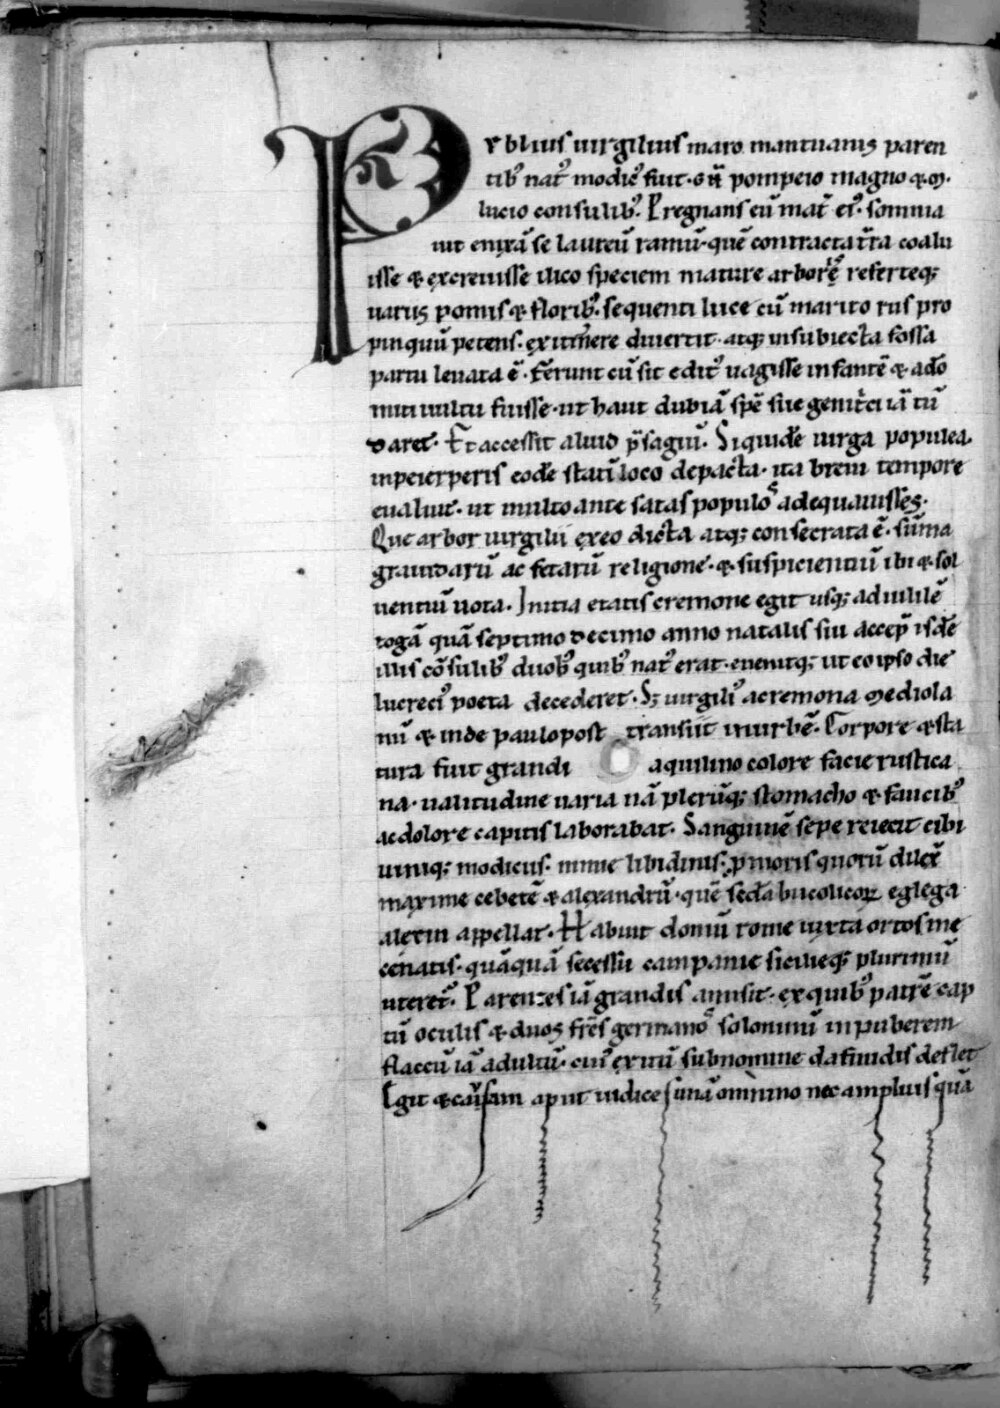 Pvblius uirgilius maro mantuanus paren
tib; nat᷒ modic᷒ fuit · gn̄ pompeio magno & m̄ ·
lucio consulib᷒. Pregnans eū mat̄ ei᷒ · somnia
uit enixā se laureū ramū · quē contracta t̄ra coalu
isse & excreuisse ilico speciem mature arborē referteq;
uariis pomis & florib᷒. sequenti luce cū marito rus pro
pinquū petens · ex itinere diuertit · atq; insubiecta fossa
partu leuata ē · ferunt cū sit edit᷒ uagisse infantē & adō
miti uultu fuisse · ut haut dubiā spē sue geniti iā tū
daret · Et accessit aliud p̄sagiū. Siquidē uirga populea
inpeierperis eodē statī loco depacta · ita breui tempore
eualuit · ut multo ante satas populo᷒ adequauisset ·
Que arbor uirgilii ex eo dicta atq; consecrata ē · sūma
grauidarū ac fetarū religione · & suspicientiū ibi & sol
uentiū uota · Initia etatis cremone egit usq; ad uililē
togā quā septimo decimo anno natalis sui accep̄ isdē
illis cōsulib᷒ duob᷒ quib᷒ nat᷒ erat · euenitq; ut eo ipso die
lucreci᷒ poeta decederet · S; uirgili᷒ a cremona mediola
nū & inde paulo post transiit in urbē · Corpore & sta
tura fuit grandi aquilino colore facie rustica
na · ualitudine uaria nā plerūq; stomacho & faucib᷒
ac dolore capitis laborabat · Sanguinē sepe reiecit cibi
uiniq; modicus · minue libidinis · p̄nioris quorū dilex̄
maxime cebetē & alexandrū · quē sēda bucolicoꝝ eglega
alexin appellat · Habuit domū rome iuxta ortos me
cenatis · quāquā secessu campanie sicilieq; plurimū
uteret᷒. Parentes iā grandis amisit · ex quib᷒ patrē cap
tū oculis & duos fr̄es germano᷒ solonnū inpuberem
flaccū iā adultū · cui᷒ exitū sub nomine dafnidis deflet
Egit & causam aput iudices unā omnino nec ampluis quā